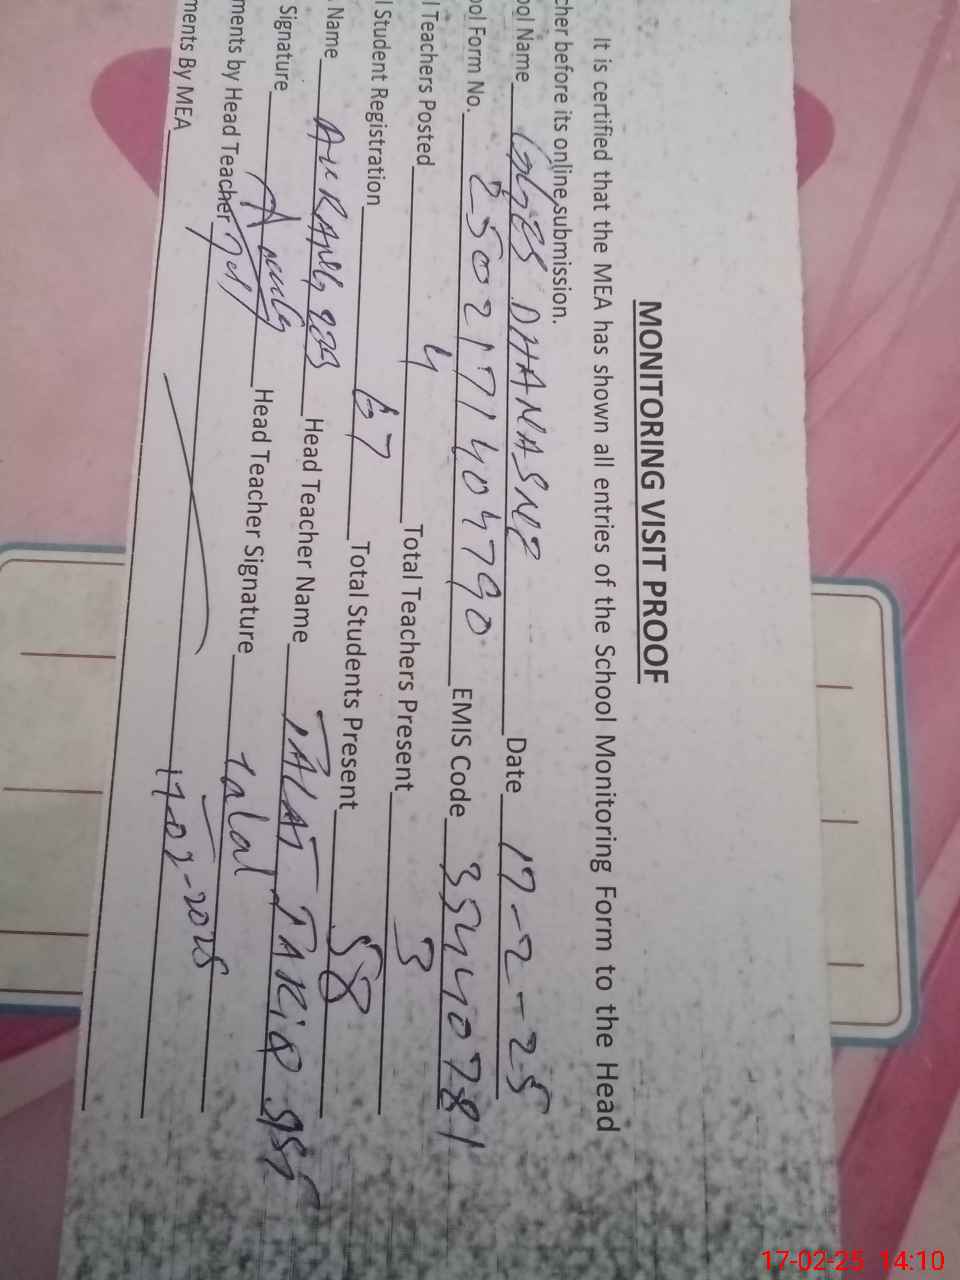 MONITORING VISIT PROOF
It is certified that the MEA has shown all entries of the School Monitoring Form to the Head
cher before its online submission.
ool Name DHANASNE Date 17-2-25
ool Form No. 2502171404790 EMIS Code 35440781
l Teachers Posted 4 Total Teachers Present 3
l Student Registration 67 Total Students Present 58
Name Head Teacher Name TALAT TARIQ
Signature Head Teacher Signature
ments by Head Teacher
17-02-2025
ments By MEA
17-02-25 14:10